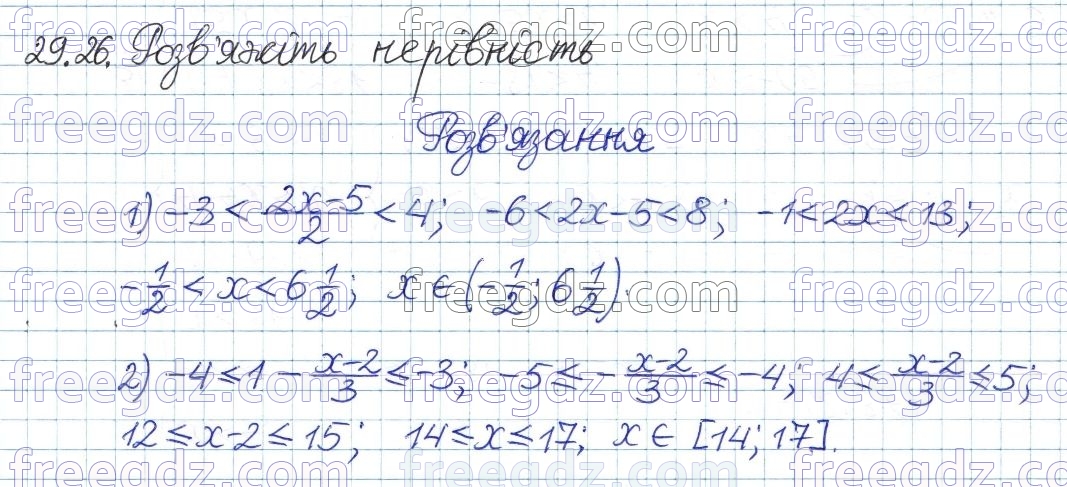 29.26. Розв'яжіть нерівність
Розв'язання
1) -3 < \frac{2x-5}{2} < 4; -6 < 2x - 5 < 8; -1 < 2x < 13;
-\frac{1}{2} < x < 6\frac{1}{2}; x ∈ (-\frac{1}{2}; 6\frac{1}{2}).
2) -4 ≤ 1 - \frac{x-2}{3} ≤ -3; -5 ≤ -\frac{x-2}{3} ≤ -4; 4 ≤ \frac{x-2}{3} ≤ 5;
12 ≤ x - 2 ≤ 15; 14 ≤ x ≤ 17; x ∈ [14; 17].
freegdz.com